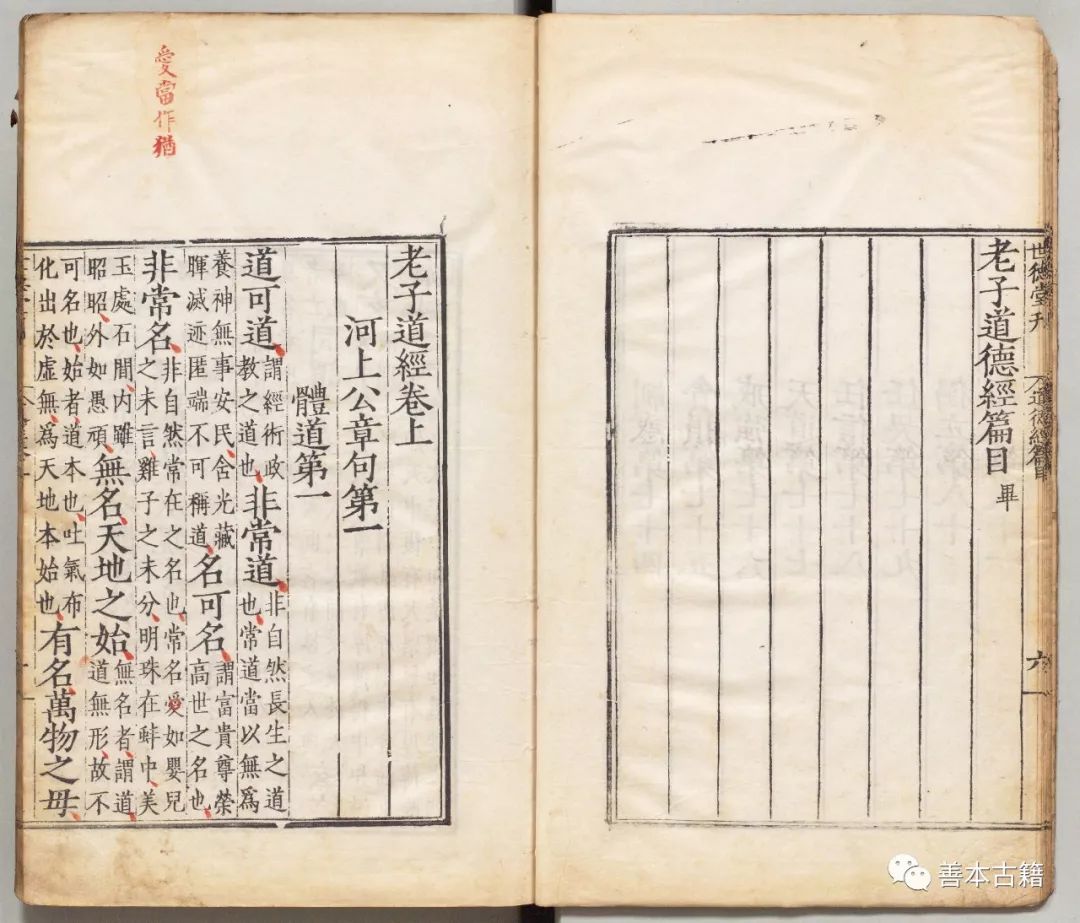 世德堂刊 道德經篇目 六
老子道德經篇目 畢
愛當作猶
老子道經卷上
河上公章句第一
體道第一
道可道謂經術政教之道也非常道非自然長生之道也常道當以無爲
養神無事安民含光藏暉滅迹匿端不可稱道名可名謂富貴尊榮高世之名也
非常名非自然常在之名也常名愛如嬰兒之未言雞子之未分明珠在蚌中美
玉處石間内雖昭昭外如愚頑無名天地之始無名者謂道道無形故不
可名也始者道本也吐氣布化出於虛無爲天地本始也有名萬物之母
善本古籍